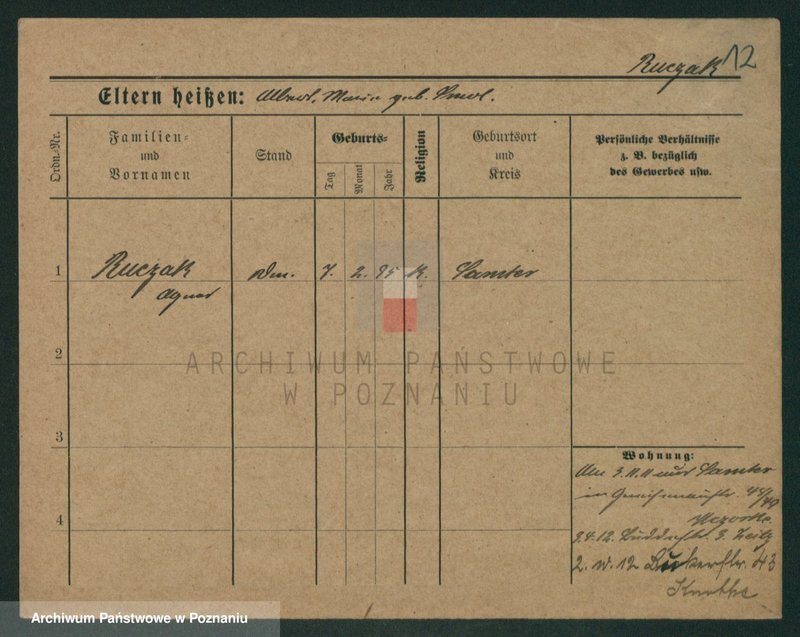 Ruczak 12
Eltern heißen: Albert, Maria geb. Smol.
Ordn.-Nr.
Familien-
und
Vornamen
Stand
Geburts-
Tag
Monat
Jahr
Religion
Geburtsort
und
Kreis
Persönliche Verhältnisse
z. B. bezüglich
des Gewerbes usw.
1 Ruczak 7. 2. 95 K. Samter
Agnes
2
ARCHIWUM PAŃSTWOWE
W POZNANIU
3
Wohnung:
Am 3.11.11 aus Samter
in
4
3.4.12.
2. 12 Bukerstr. 43
Archiwum Państwowe w Poznaniu